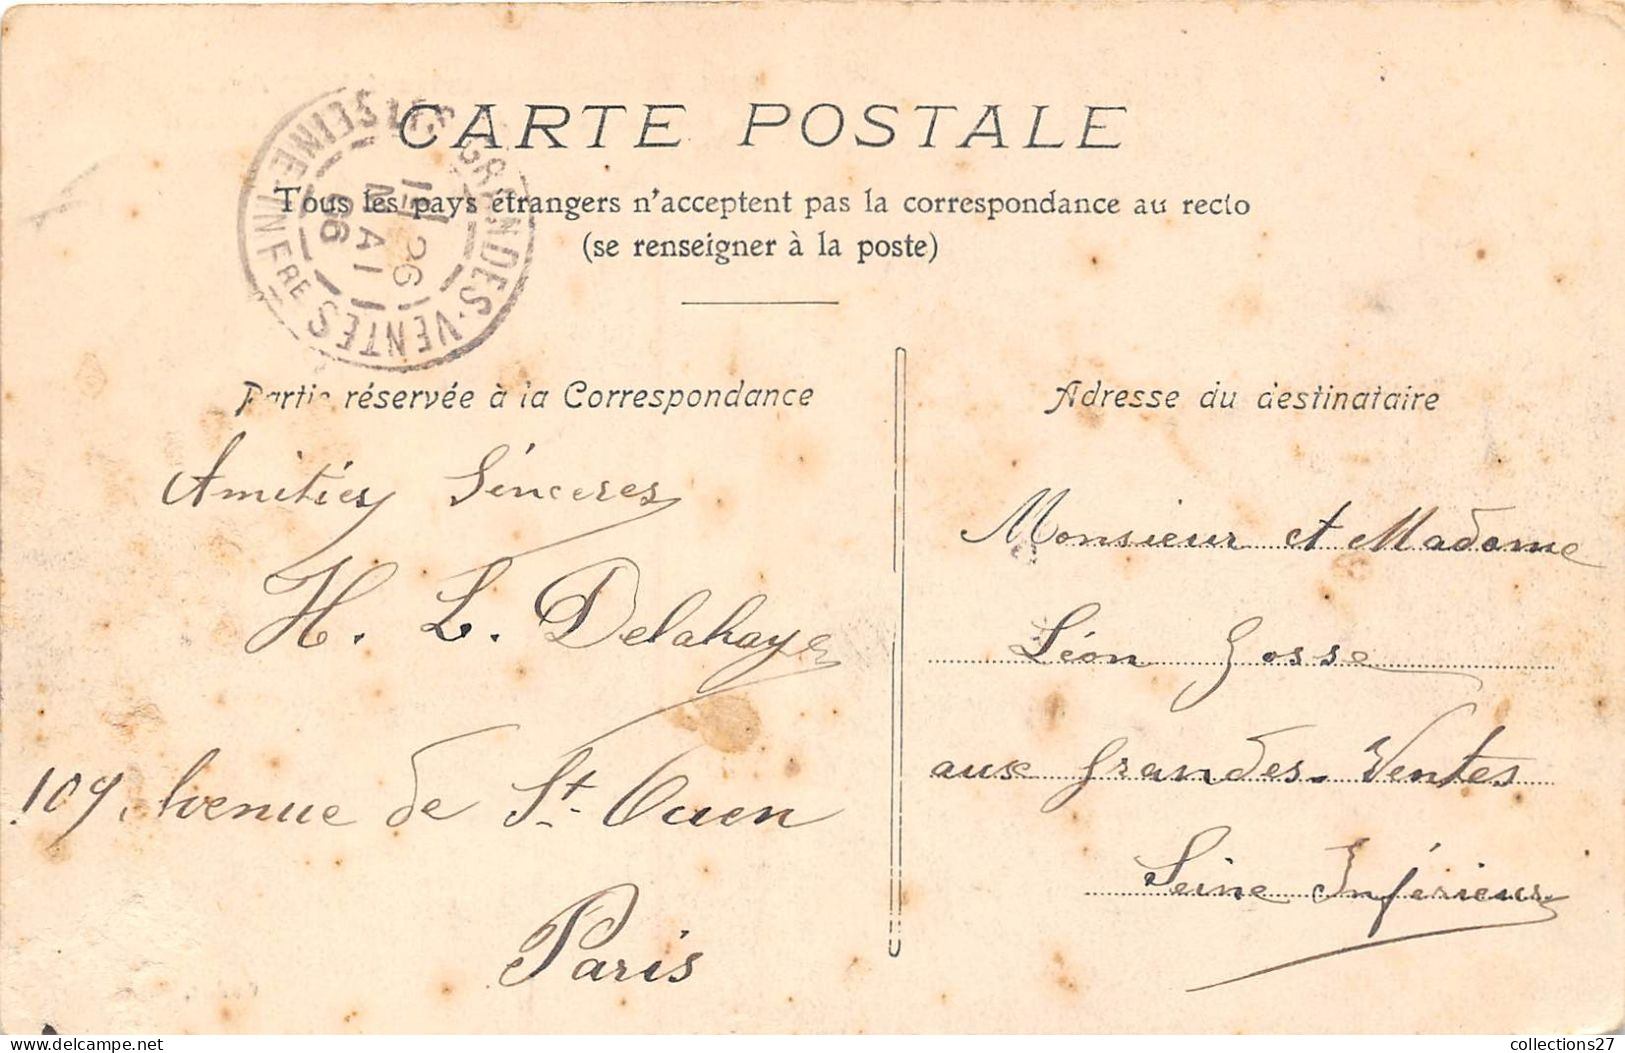 CARTE POSTALE
Tous les pays étrangers n'acceptent pas la correspondance au recto
(se renseigner à la poste)
LES GRANDES-VENTES
SEINE-INFRE
26
MAI
06
Partie réservée à la Correspondance
Amitiés Sincères
H. L. Delahaye
109, Avenue de St. Ouen
Paris
Adresse du destinataire
Monsieur et Madame
Léon Gosse
aux Grandes-Ventes
Seine Inférieure
delcampe.net
collections27